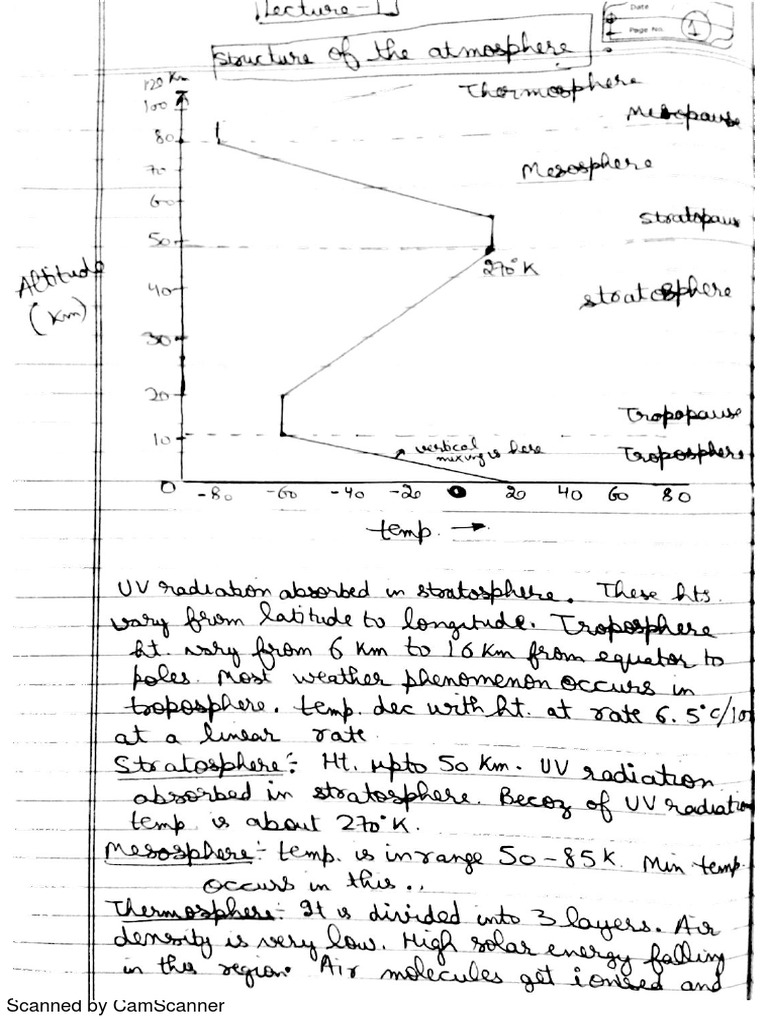 Lecture - 1
Date
Page No. 1
Structure of the atmosphere
120 Km
Thermosphere
100
Mesopause
80
70
Mesosphere
60
Stratopaus
50
270°K
Altitude
(Km)
40
stratosphere
30
20
Tropopause
10
vertical
mixing is here
Troposphere
0 -80 -60 -40 -20 0 20 40 60 80
temp. →
UV radiation absorbed in stratosphere. These hts
vary from latitude to longitude. Troposphere
ht. vary from 6 Km to 16 Km from equator to
poles. Most weather phenomenon occurs in
troposphere. temp. dec with ht. at rate 6.5°c/10
at a linear rate
Stratosphere:- Ht. upto 50 Km. UV radiation
absorbed in stratosphere. Becoz of UV radiation
temp is about 270°K.
Mesosphere:- temp. is in range 50-85K. Min temp
occurs in this..
Thermosphere:- It is divided into 3 layers. Air
density is very low. High solar energy falling
in this region. Air molecules get ionised and
Scanned by CamScanner